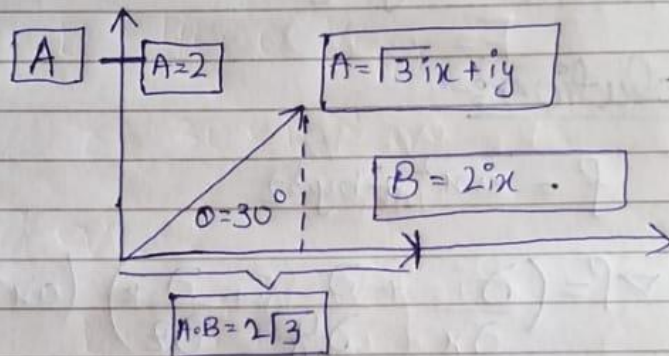 A
A=2
A=√3ix+iy
B = 2ix .
θ=30°
A·B=2√3